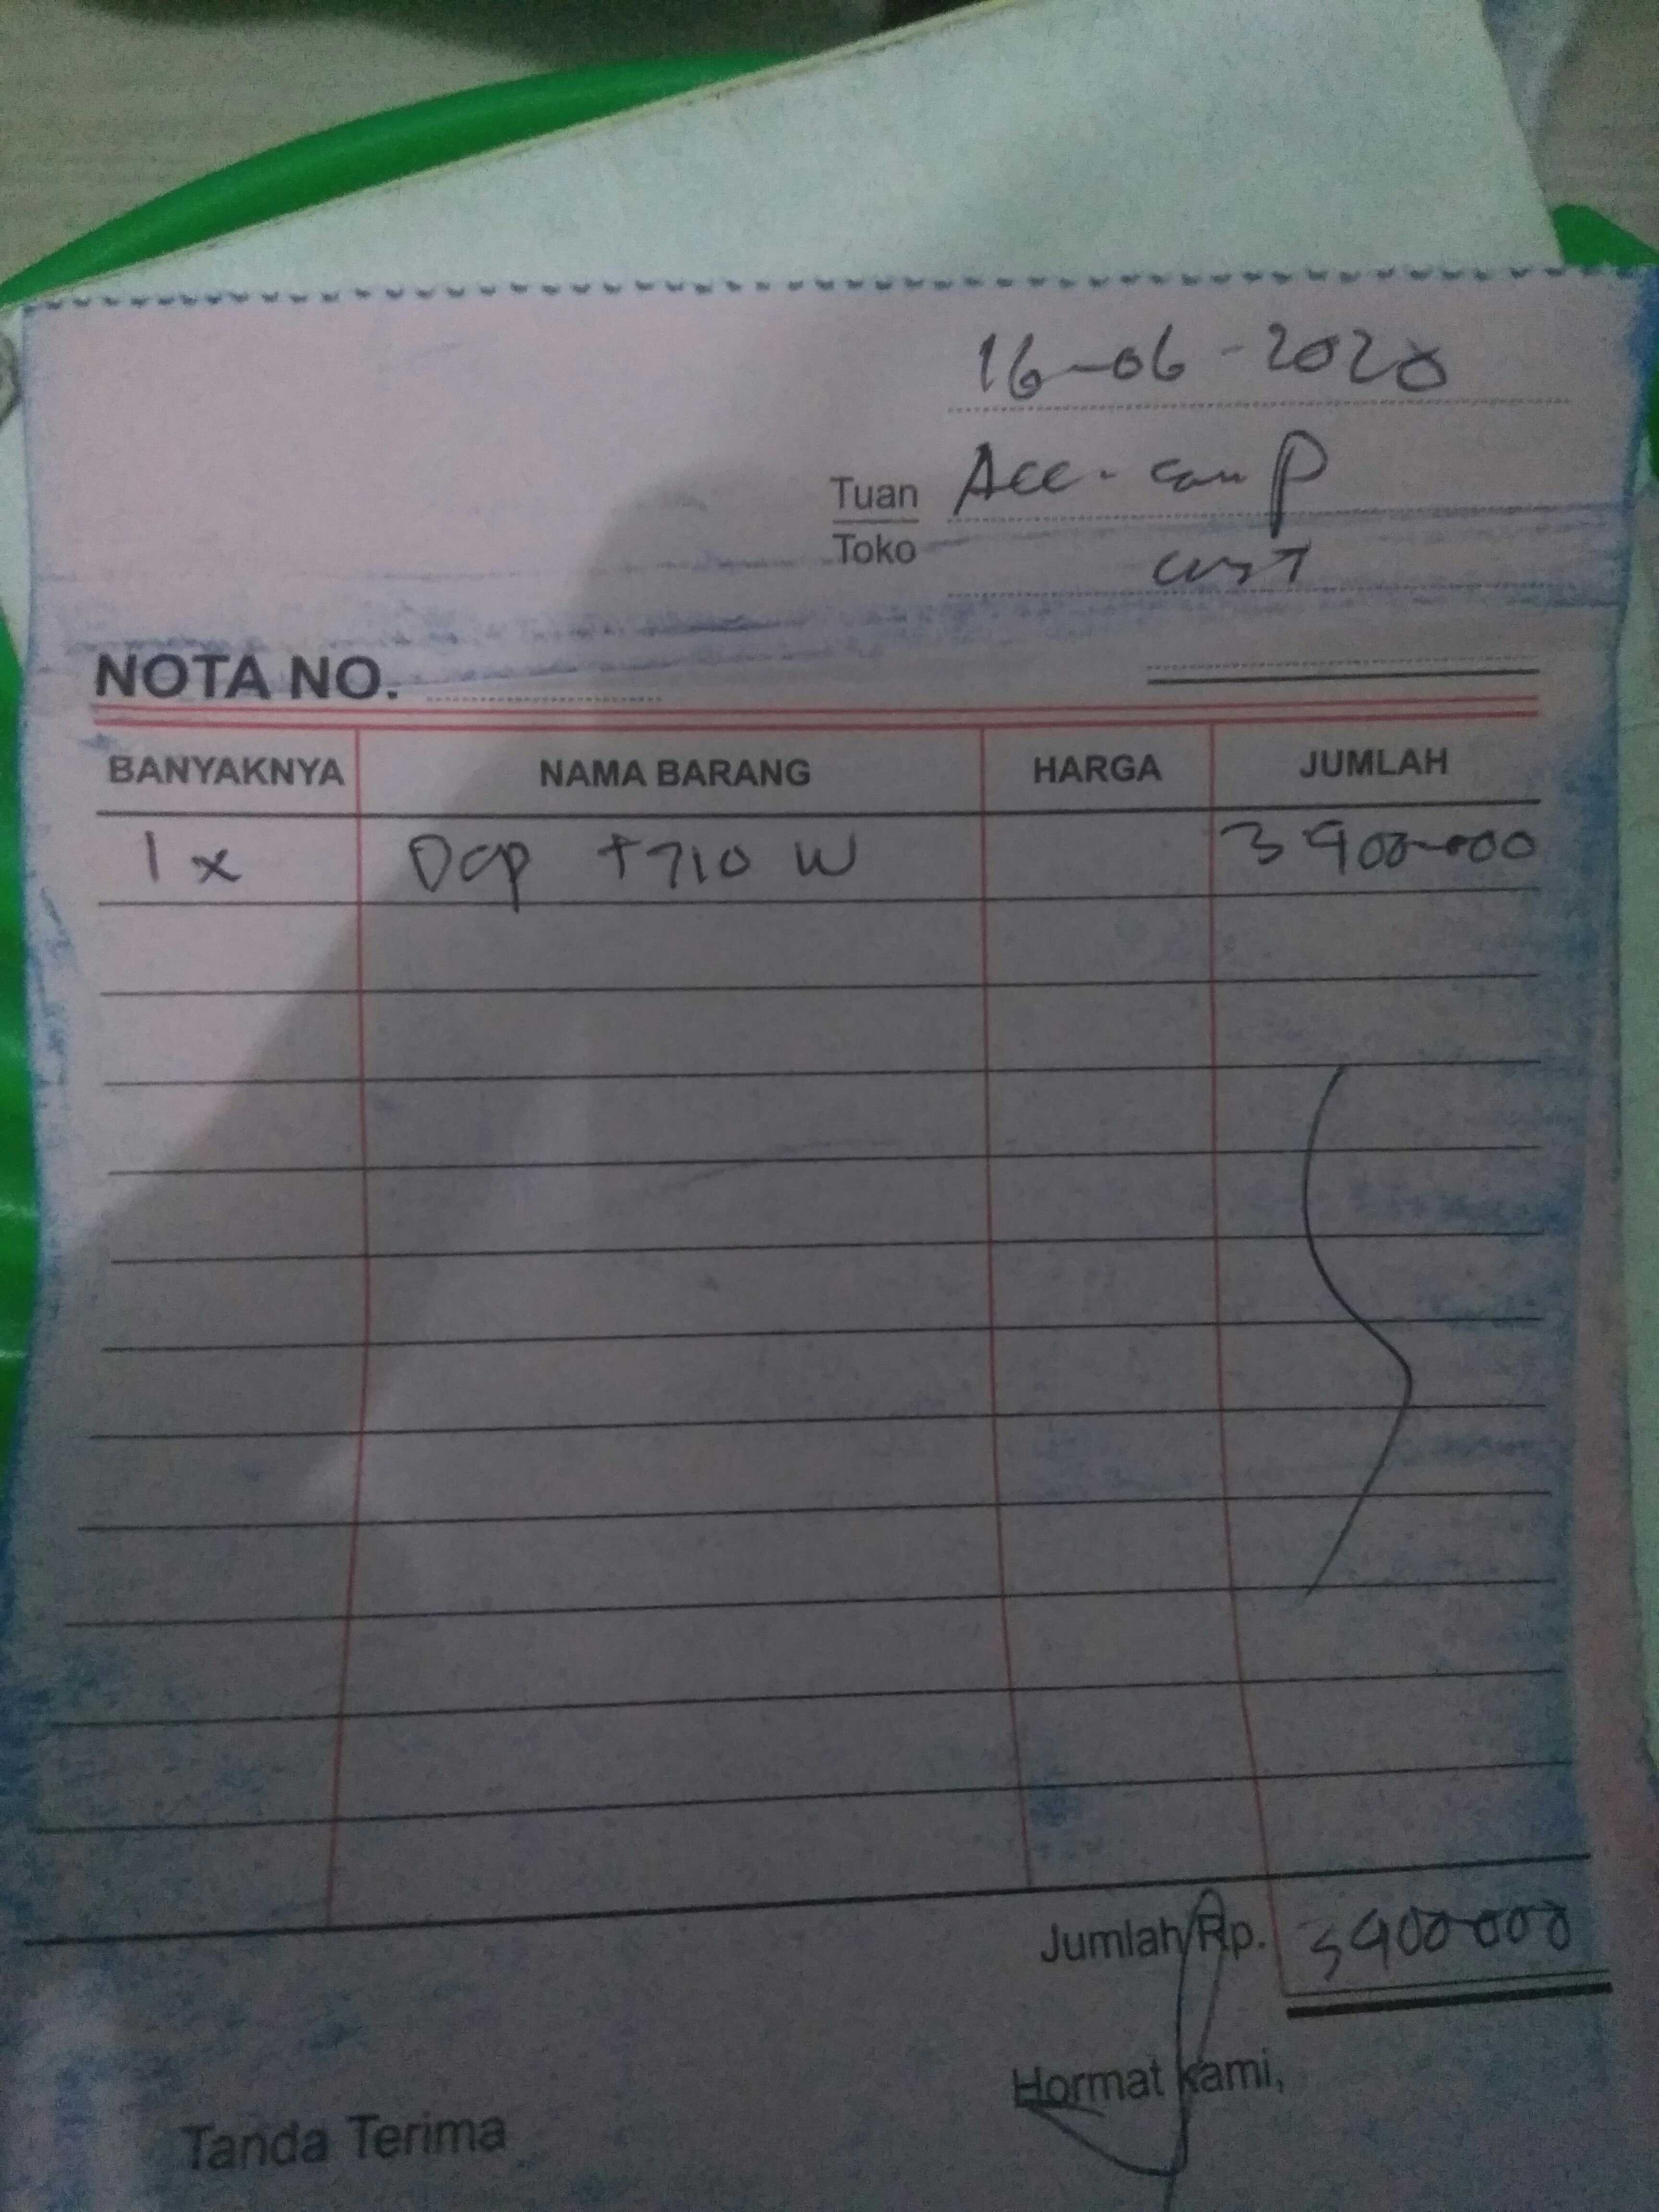 16-06-2020
Tuan Acc-comp
Toko cust
NOTA NO.
BANYAKNYA NAMA BARANG HARGA JUMLAH
1 x Dcp T710 W 3 900.000
Jumlah Rp. 3 900 000
Hormat kami,
Tanda Terima